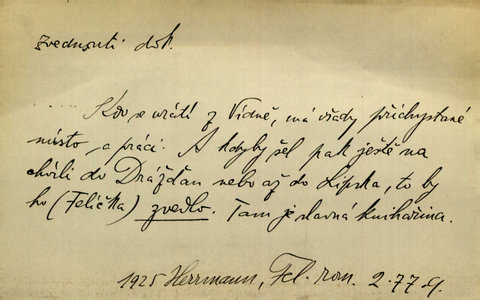 zvednouti dok.
..... Kdo se vrátí z Vídně, má všady přichystané
místo a práci. A kdyby šel pak ještě na
chvíli do Drážďan nebo až do Lipska, to by
ho (Felíčka) zvedlo. Tam je slavná knihařina.
1925 Herrmann, Fel. rom. 2.77.9.